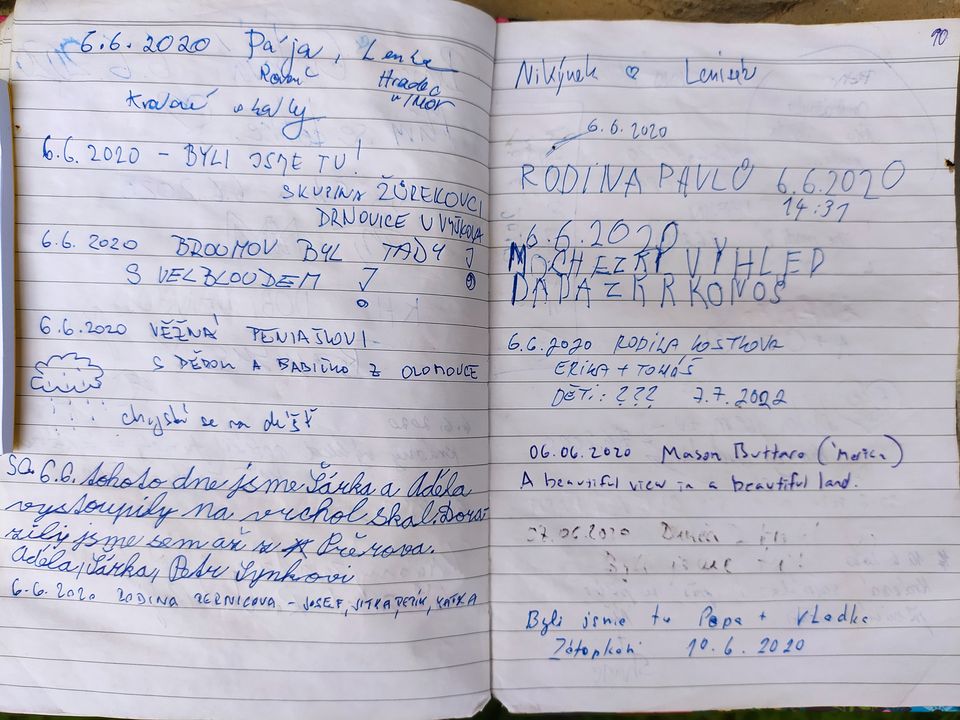 6.6.2020 Pája, Lenka
Hradec
n/Mor
6.6.2020 - BYLI JSME TU!
SKUPINA ŽŮREKOVCI
DRNOVICE U VYŠKOVA
6.6.2020 BROUMOV BYL TADY
S VELBLOUDEM !
6.6.2020 VĚŽNÁ PENIAŠKOVI -
S DĚDOU A BABIČKO Z OLOMOUCE
chystá se na déšť
SO. 6.6. tohoto dne jsme Šárka a Adéla
vystoupily na vrchol skal. Dora-
zily jsme sem až z Přerova.
Adéla, Šárka, Petr Synkovi
6.6.2020 RODINA - JOSEF, JITKA, PEPÍK, KAČKA
90
Nikýnek ♡
6.6.2020
RODINA PAVLŮ 6.6.2020
14:31
6.6.2020
MOC HEZKÝ VÝHLED
DÁDA Z KRKONOŠ
6.6.2020 RODINA KOSTKOVA
ERIKA + TOMÁŠ
DĚTI: ??? 7.7.2022
06.06.2020 Mason Buttaro ('merica)
A beautiful view in a beautiful land.
07.06.2020
Byli jsme
Byli jsme tu Pepa + Vlaďka
Zátopkovi 10.6.2020